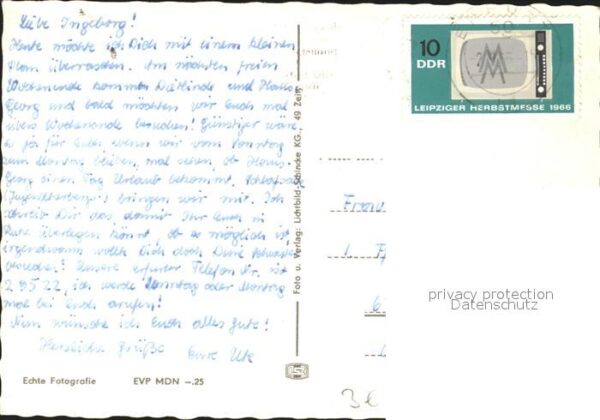 Liebe Ingeborg!
Heute möchte ich Dich mit einem kleinen
Plan überraschen. Am nächsten freien
Wochenende kommen Dietlinde und Hans-
Georg und bald möchten wir Euch mal
übers Wochenende besuchen! Günstiger wäre
es ja für Euch wenn wir vom Sonntag
zum Montag bleiben, mal sehen, ob Hans-
Georg einen Tag Urlaub bekommt. Schlafsäcke
(Jugendherberge) bringen wir mit. Ich
schreib Dir das damit Ihr Euch in
Ruhe überlegen könnt, ob es möglich ist,
irgendwann wollte Dich doch Deine
besuchen! Unsere erfurter Telefon Nr. ist
29522, ich werde Sonntag oder Montag
mal bei Euch anrufen!
Nun wünsche ich Euch alles Gute!
Herzliche Grüße Eure Ute
Echte Fotografie EVP MDN –.25
Foto u. Verlag: Lichtbild-Schincke KG. 49 Zeitz
10
DDR
MM
LEIPZIGER HERBSTMESSE 1966
Frau
1.
privacy protection
Datenschutz
3€